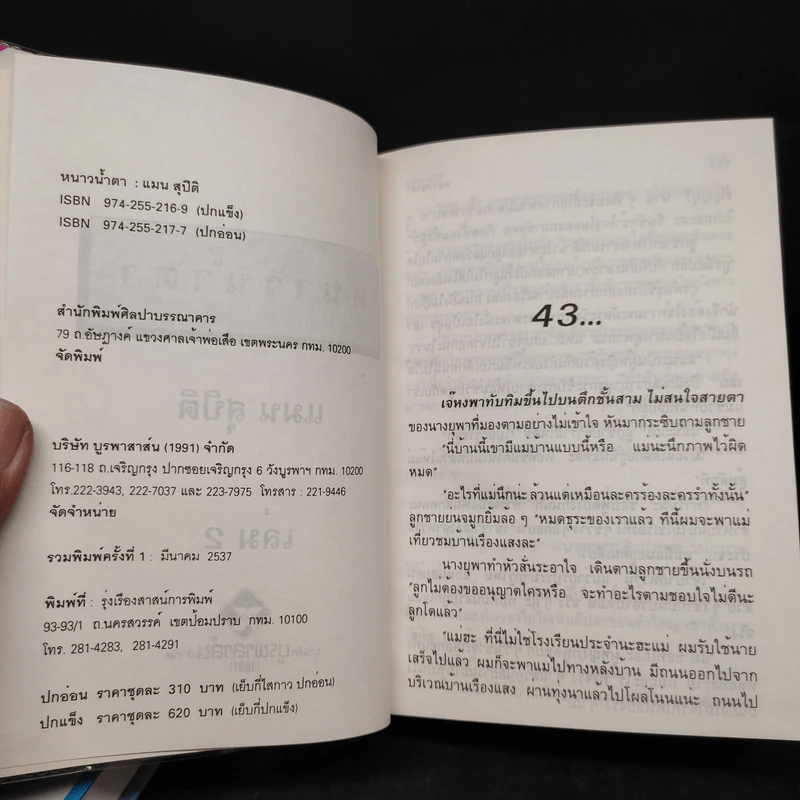 หนาวน้ำตา : แมน สุปิติ
ISBN 974-255-216-9 (ปกแข็ง)
ISBN 974-255-217-7 (ปกอ่อน)
สำนักพิมพ์ศิลปาบรรณาคาร
79 ถ.อัษฎางค์ แขวงศาลเจ้าพ่อเสือ เขตพระนคร กทม. 10200
จัดพิมพ์
บริษัท บูรพาสาส์น (1991) จำกัด
116-118 ถ.เจริญกรุง ปากซอยเจริญกรุง 6 วังบูรพาฯ กทม. 10200
โทร.222-3943, 222-7037 และ 223-7975 โทรสาร : 221-9446
จัดจำหน่าย
รวมพิมพ์ครั้งที่ 1 : มีนาคม 2537
พิมพ์ที่ : รุ่งเรืองสาสน์การพิมพ์
93-93/1 ถ.นครสวรรค์ เขตป้อมปราบ กทม. 10100
โทร. 281-4283, 281-4291
ปกอ่อน ราคาชุดละ 310 บาท (เย็บกี่ไสกาว ปกอ่อน)
ปกแข็ง ราคาชุดละ 620 บาท (เย็บกี่ปกแข็ง)
43...
เจ๊หงพาทับทิมขึ้นไปบนตึกชั้นสาม ไม่สนใจสายตา
ของนางยุพาที่มองตามอย่างไม่เข้าใจ หันมากระซิบถามลูกชาย
"นี่บ้านนี้เขามีแม่บ้านแบบนี้หรือ แม่น่ะนึกภาพไว้ผิด
หมด"
"อะไรที่แม่นึกน่ะล้วนแต่เหมือนละครร้องละครรำทั้งนั้น"
ลูกชายย่นจมูกยิ้มล้อ ๆ "หมดธุระของเราแล้ว ทีนี้ผมจะพาแม่
เที่ยวชมบ้านเรืองแสงละ"
นางยุพาทำหัวสั่นระอาใจ เดินตามลูกชายขึ้นนั่งบนรถ
"ลูกไม่ต้องขออนุญาตใครหรือ จะทำอะไรตามชอบใจไม่ดีนะ
ลูกโตแล้ว"
"แม่ฮะ ที่นี่ไม่ใช่โรงเรียนประจำนะฮะแม่ ผมรับใช้นาย
เสร็จไปแล้ว ผมก็จะพาแม่ไปทางหลังบ้าน มีถนนออกไปจาก
บริเวณบ้านเรืองแสง ผ่านทุ่งนาแล้วไปโผล่โน่นแน่ะ ถนนไป